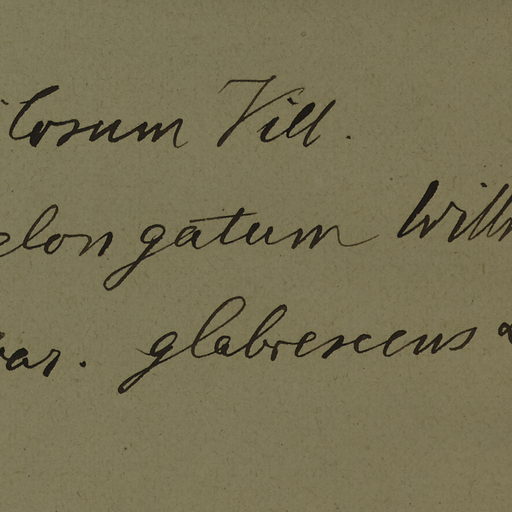 ilosum Vill.
elongatum Willd
var. glabrescens